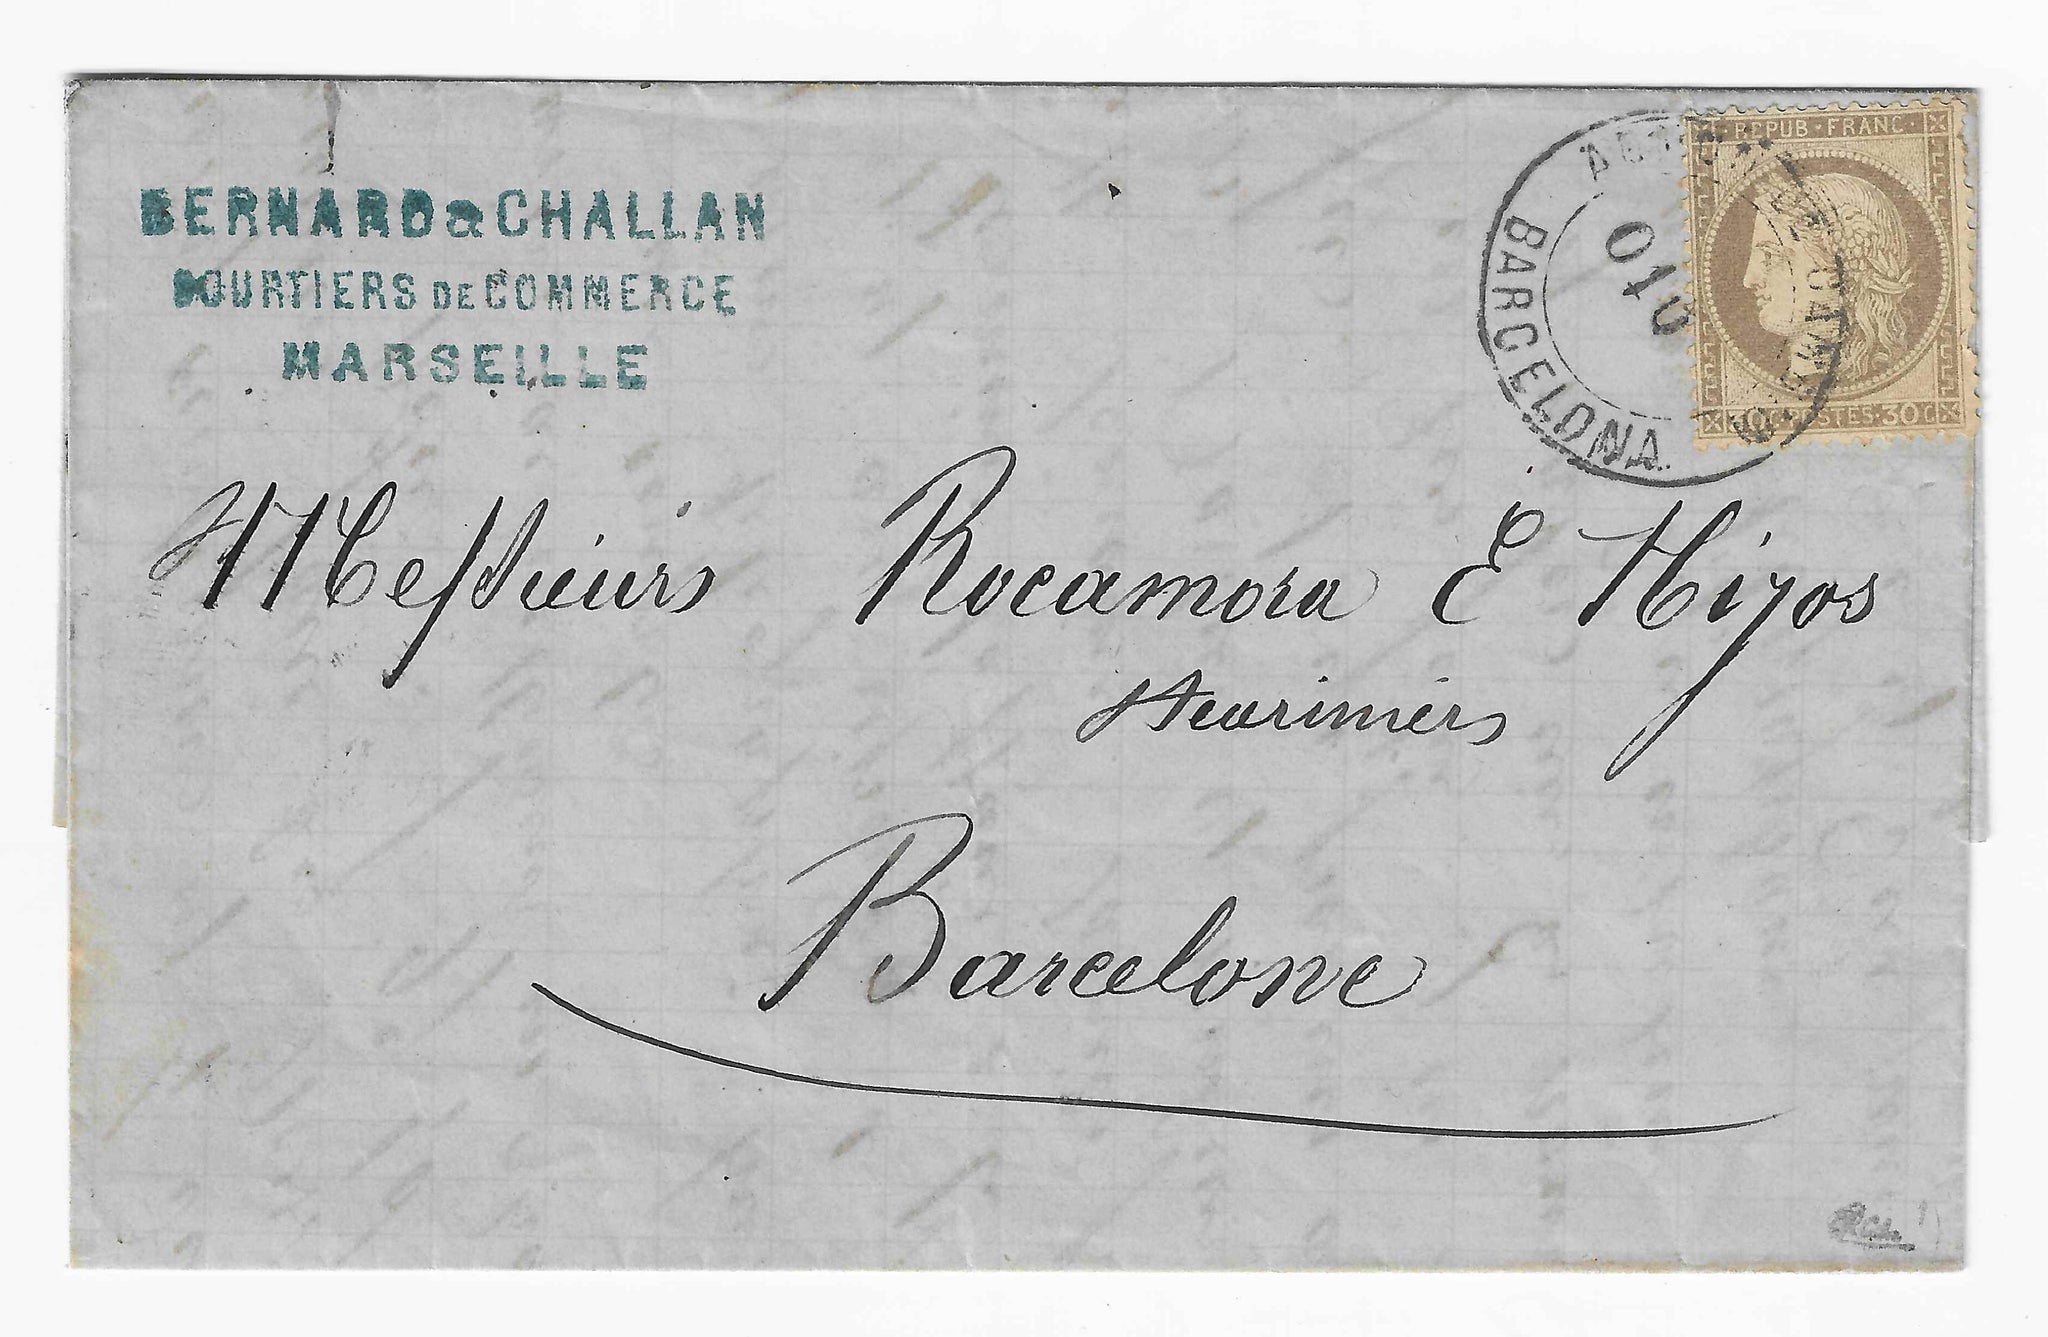 BERNARD & CHALLAN
COURTIERS DE COMMERCE
MARSEILLE
REPUB · FRANC ·
30 C · POSTES · 30 C
BARCELONA
Messieurs Rocamora & Hijos
Barcelone